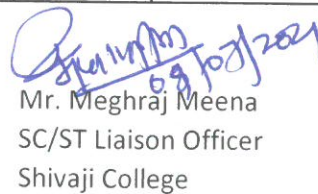 08/07/2021
Mr. Meghraj Meena
SC/ST Liaison Officer
Shivaji College